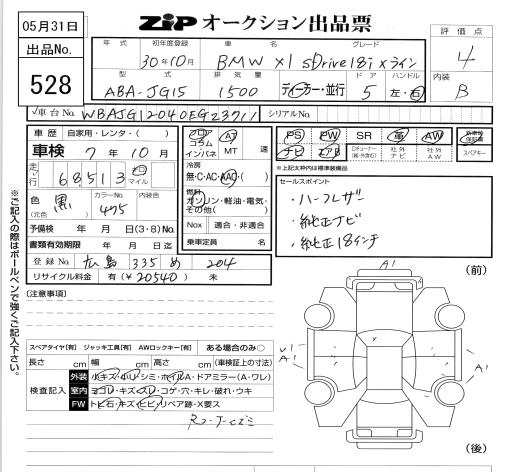 05月31日
ZIP オークション出品票
出品No. 528
年式 初年度登録 車名 グレード 評価点
30年10月 BMW X1 sDrive18i xライン 4
型式 排気量 ドア ハンドル 内装
ABA-JG15 1500 ディーカー・並行 5 左・右 B
車台No. WBAJG12040EG23711 シリアルNo.
車歴 自家用・レンタ・( )
車検 7年10月
走行 68513 キロ マイル
色 (元色) 黒 カラーNo. 475 内装色
予備検 年 月 日(3・8)No.
書類有効期限 年 月 日迄
登録No. 広島 335 め 204
リサイクル料金 有(¥20540) 未
フロア コラム インパネ AT MT 速
冷房 無・C・AC・AAC・( )
燃料 ガソリン・軽油・電気・その他( )
Nox 適合・非適合
乗車定員 名
PS PW SR 革 AW
ナビ エアB Dチューナー 社外ナビ 社外AW スペアキー
※上記太枠内は標準装備品
セールスポイント
・ハーフレザー
・純正ナビ
・純正18インチ
※ご記入の際はボールペンで強くご記入下さい。
[注意事項]
スペアタイヤ[有] ジャッキ工具[有] AWロックキー[有] ある場合のみ○
長さ cm 幅 cm 高さ cm (車検証上の寸法)
検査記入
外装 小キズ・小U・シミ・ホイルA・ドアミラー(A・ワレ)
室内 ヨゴレ・キズ・スレ・コゲ・穴・キレ・破れ・ウキ
FW トビ石・キズ・ヒビ・リペア跡・X要ス
(前)
A1
A1
A1
(後)